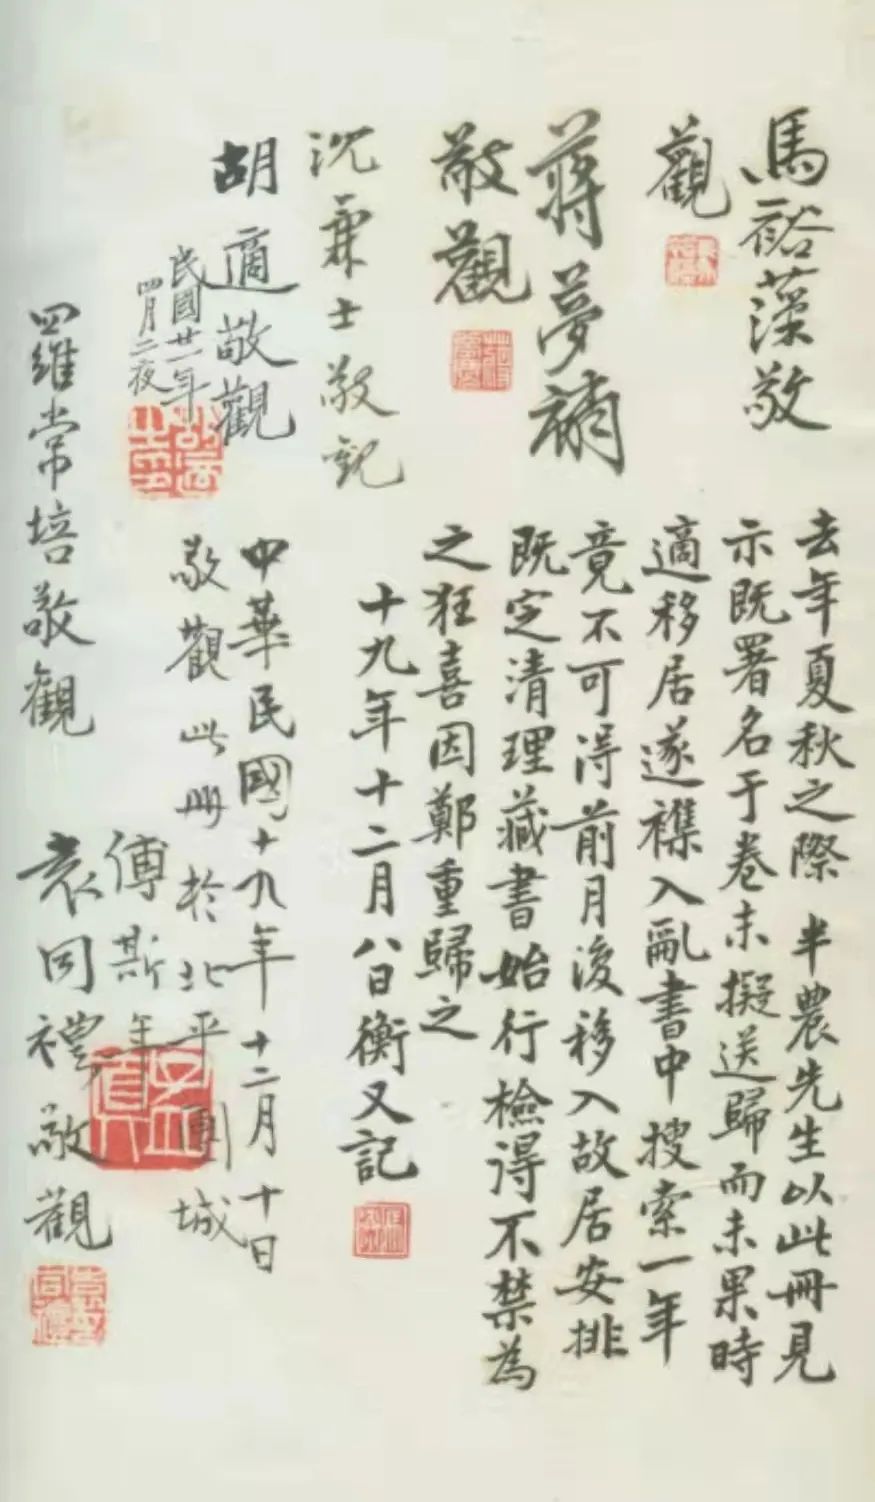 馬裕藻敬
觀
蔣夢麟
敬觀
沈兼士敬觀
胡適敬觀
民國廿一年
四月二夜
去年夏秋之際 半農先生以此冊見
示既署名于卷末擬送歸而未果時
適移居遂襍入亂書中搜索一年
竟不可得前月復移入故居安排
既定清理藏書始行檢得不禁為
之狂喜因鄭重歸之
十九年十二月八日衡又記
中華民國十九年十二月十日
敬觀此冊於北平團城
傅斯年
羅常培敬觀
袁同禮敬觀